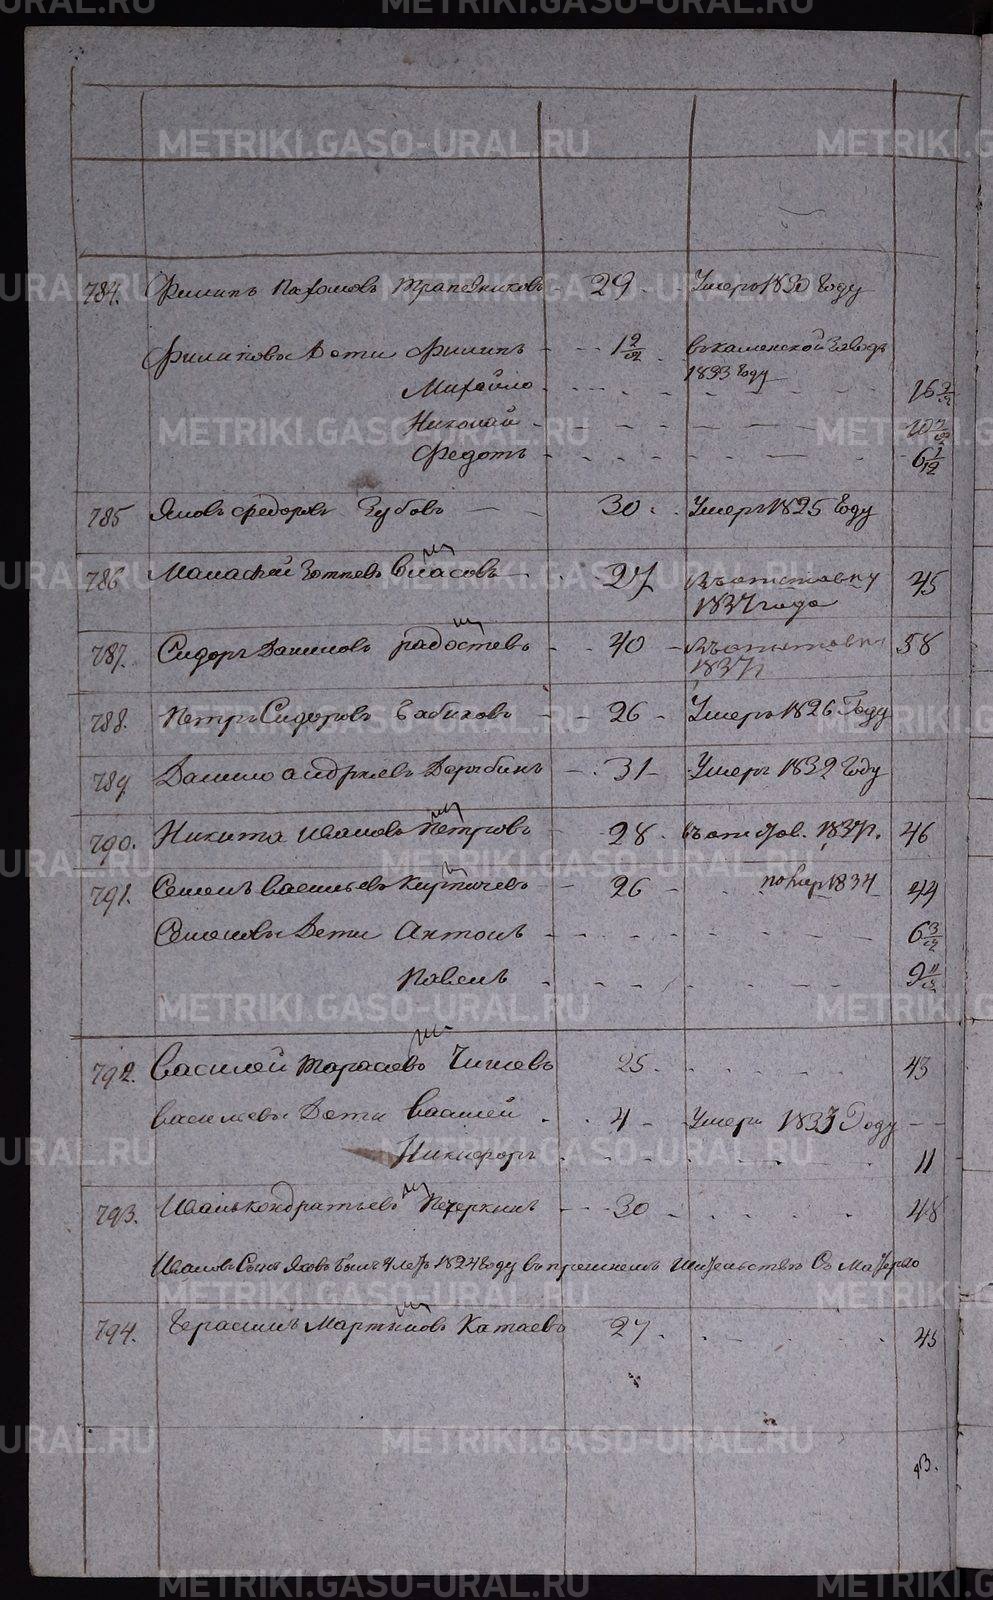 METRIKI.GASO-URAL.RU
784. Филипъ Пахомовъ Трапезниковъ - 29 - Умеръ 1830 году
Филиповы Дети Филипъ - - 1 9/12 - въ каменской заводъ
1833 году
Михайло - - - 16
Николай - - - 10
Федотъ - - - 6 1/12
785 Яковъ Федоровъ Зубовъ - - 30 - Умеръ 1825 году
786 Власовъ - 27 въ отставку 45
1837 года
787. Сидоръ Даниловъ - 40 - въ отставку 58
1837 г
788. Петръ Сидоровъ Бабиковъ - 26 - Умеръ 1826 Году
789 Данило Андреевъ - 31 - Умеръ 1832 году
790. Никита Ивановъ Петровъ - 28 - въ отстав. 1837 г. 46
791. Семенъ Васильевъ - 26 - 1834 44
Семеновы Дети Антонъ - - - 6 3/12
Павелъ - - - 9 11/12
792. Василей Тарасовъ Чижовъ 25 - - 43
Васильевы Дети Василей - 4 - Умеръ 1837 Году - -
Никифоръ - - - 11
793. Иванъ Кондратьевъ - 30 - - 48
Ивановъ Сынъ Яковъ 1824 году
794. Герасимъ Мартыновъ Катаевъ 27 - - 45